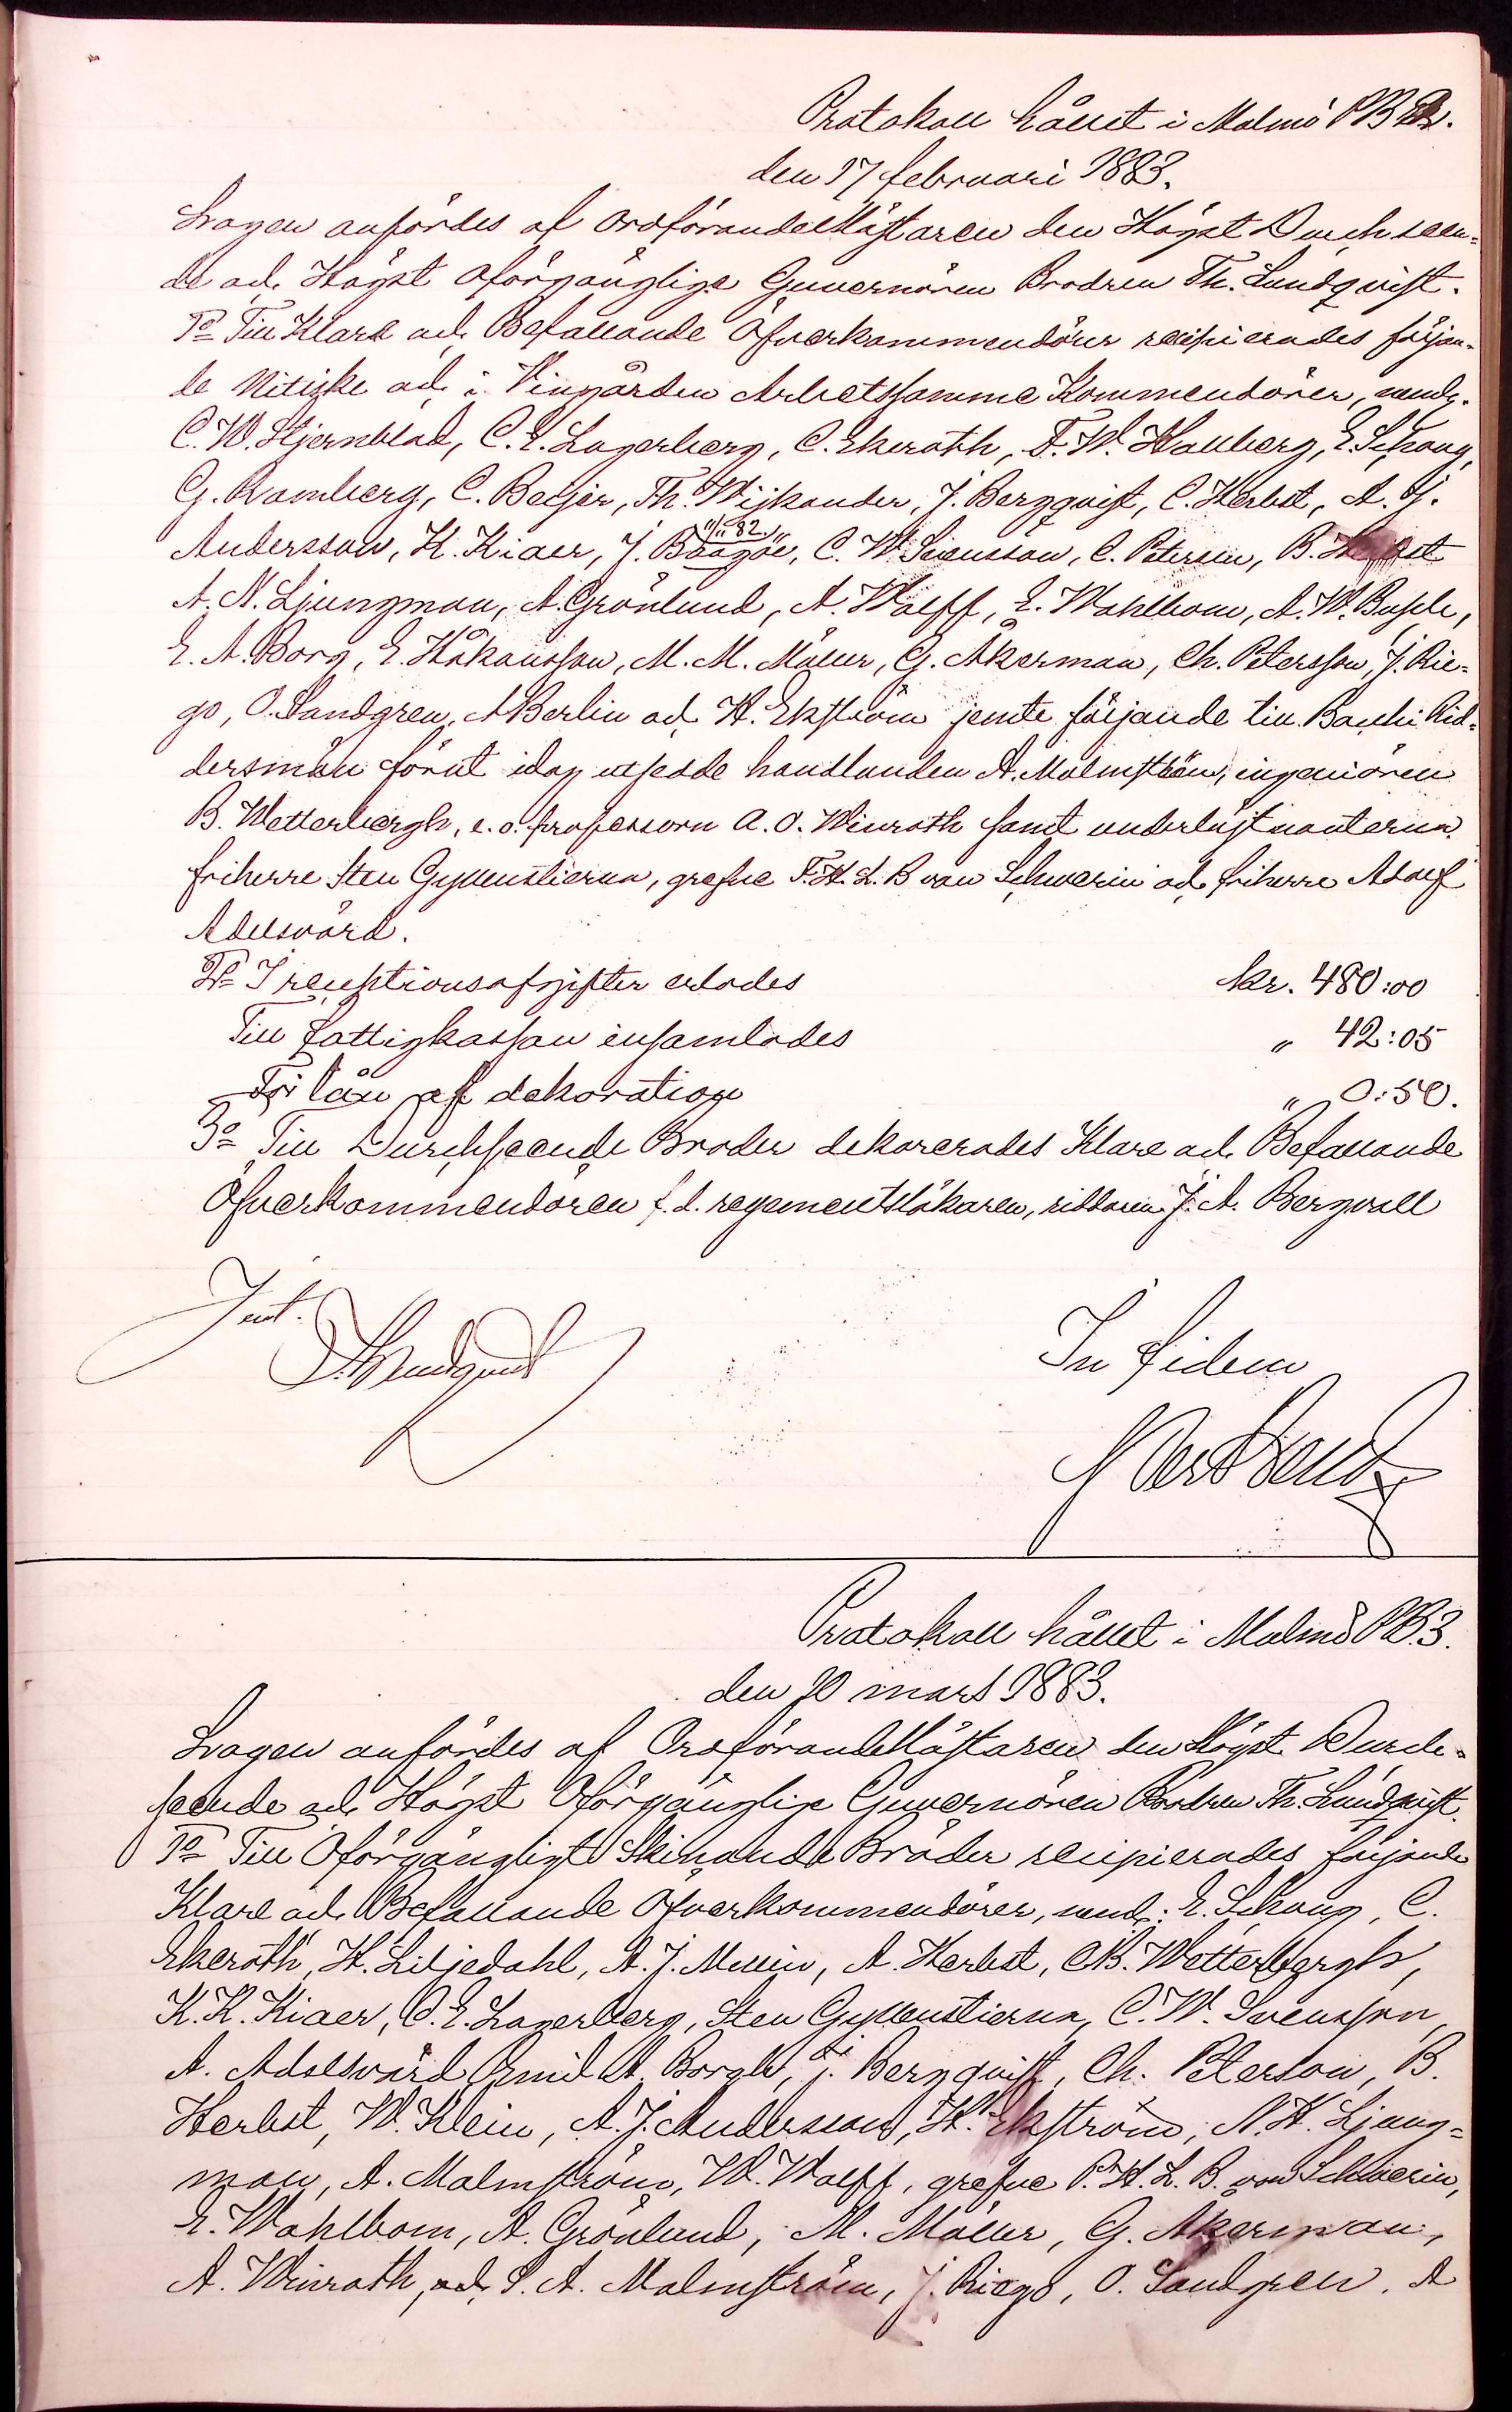 Protokoll hållet i Malmö PB
den 17 februari 1883.
Logen anfördes af Ordförande Mästaren den Högst Durchseen-
de och Högst Oförgänglige Guvernören Brodren Th. Lundqvist.
1o Till Klare och Befallande Öfverkommendörer recipierades följan-
de Nitiske och i Vingården Arbetsamme Kommendörer, neml.
C. W. Stjernblad, C. E. Lagerberg, C. Ekeroth, F. W. Hallberg, E. Schoug,
G. Ramberg, C. Beijer, Th. Wijkander, J. Bergqvist, C. Herbst, A. J.
Andersson, K. Kiaer, J. Bangöe, C. W. Svensson, C. Petersen, B. Herbst
A. N. Ljungman, A. Grönlund, A. Wolff, E. Wahlbom, A. W. Busch,
E. A. Borg, E. Håkansson, M. M. Möller, G. Åkerman, Ch. Petersson, J. Rie-
go, O. Sandgren, A Berlin och H. Ekström jemte följande till Bacchi Rid-
dersmän förut idag utsedde handlanden A. Malmström, ingeniören
B. Wetterbergh, e. o. professorn A. O. Winroth samt underlöjtnanterna
friherre Sten Gyllenstierna, grefve F. H. L. B von Schwerin och friherre Adolf
Adelsvärd.
2o I receptionsafgifter erlades kr. 480:00
Till fattigkassan insamlades " 42:05
För lån af dekoration " 0:50.
3o Till Durchseende Broder dekorerades Klare och Befallande
Öfverkommendören f. d. regementsläkaren, riddaren J. A. Bergvall
Just.
Th Lundqvist
In fidem
Protokoll hållet i Malmö PB.3.
den 10 mars 1883.
Logen anfördes af Ordförande Mästaren den Högst Durch-
seende och Högst Oförgänglige Guvernören Brodren Th. Lundqvist.
1o Till Oförgängligt Skinande Bröder recipierades följande
Klare och Befallande Öfverkommendörer, neml: E. Schoug, C.
Ekeroth, H. Liljedahl, A. J. Mellin, A. Herbst, B. Wetterbergh,
K. K. Kiaer, C. E. Lagerberg, Sten Gyllenstierna, C. W. Svensson,
A. Adelsvärd, Emil A. Borgh, J. Bergqvist, Ch. Peterson, B.
Herbst, W. Klein, A. J. Andersson, H. Ekström, N. H. Ljung-
man, A. Malmström, W. Wolff, grefve P. H. L. B. von Schwerin,
E. Wahlbom, A. Grönlund, M. Möller, G. Åkerman,
A. Winroth, och S. A. Malmström, J. Riego, O. Sandgren, A